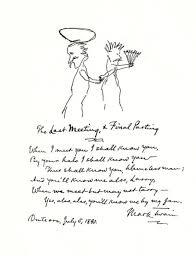 The Last Meeting, & Final Parting
When I meet you I shall know you,
By your halo I shall know you
Thus shall I know you, blameless man;
And you'll know me also,
When we meet but may not tarry —
Yes, alas, alas, you'll know me by my fan.
Mark Twain
July 4, 1880.